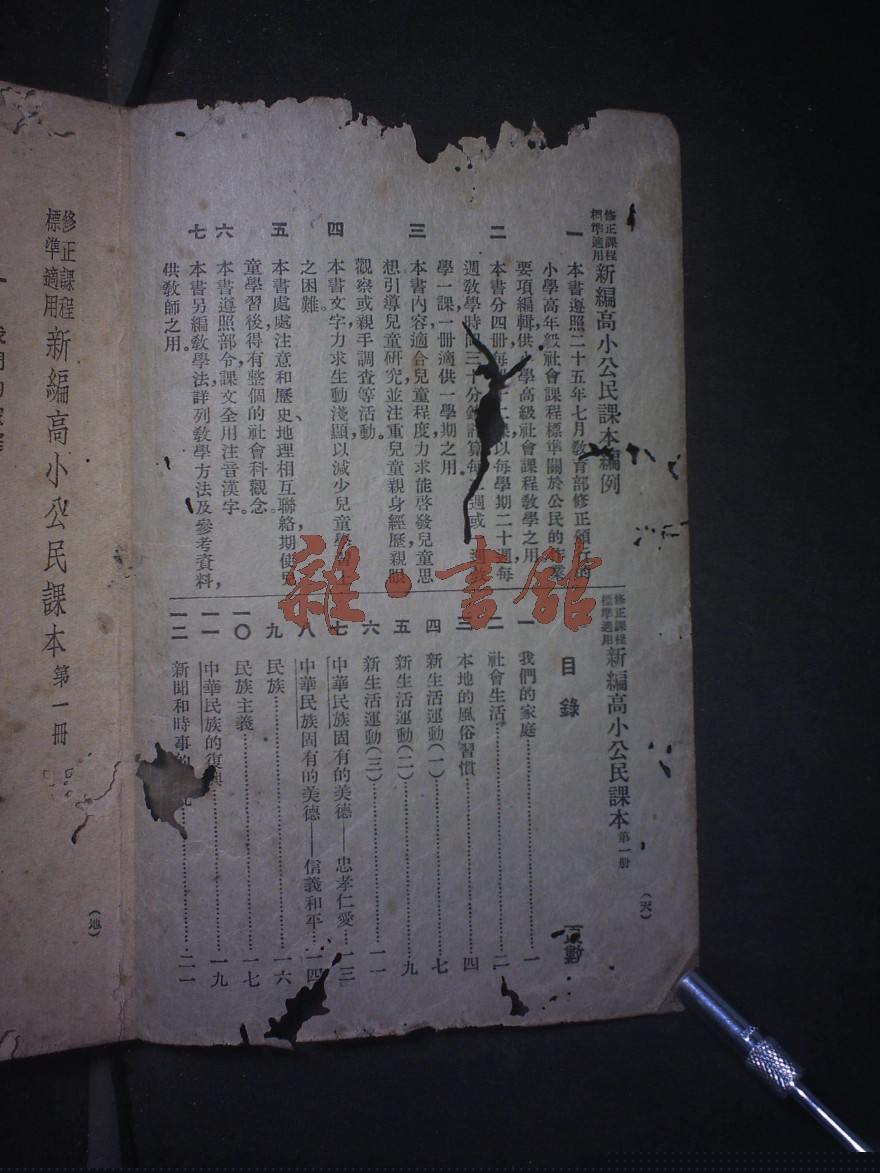 修正課程標準適用 新編高小公民課本編例
一 本書遵照二十五年七月教育部修正頒行的
小學高年級社會課程標準關於公民的作業
要項編輯,供小學高級社會課程教學之用。
二 本書分四冊每 十二課以每學期二十週每
週教學時間三十分鐘計算每 週或 週教
學一課一冊適供一學期之用。
三 本書內容適合兒童程度力求能啓發兒童思
想引導兒童研究並注重兒童親身經歷親眼
觀察或親手調查等活動。
四 本書文字力求生動淺顯以減少兒童學習
之困難。
五 本書處處注意和歷史、地理相互聯絡期使兒
童學習後得有整個的社會科觀念。
六 本書遵照部令,課文全用注音漢字。
七 本書另編教學法詳列教學方法及參考資料,
供教師之用。
修正課程標準適用 新編高小公民課本 第一册
(天)
目錄
頁數
一 我們的家庭……一
二 社會生活……二
三 本地的風俗習慣……四
四 新生活運動(一)……七
五 新生活運動(二)……九
六 新生活運動(三)……一一
七 中華民族固有的美德——忠孝仁愛……一三
八 中華民族固有的美德——信義和平……一四
九 民族……一六
一〇 民族主義……一七
一一 中華民族的復興……一九
一二 新聞和時事的 ……二一
雜·書館
修正課程標準適用 新編高小公民課本 第一冊
(地)
一 我們的家庭